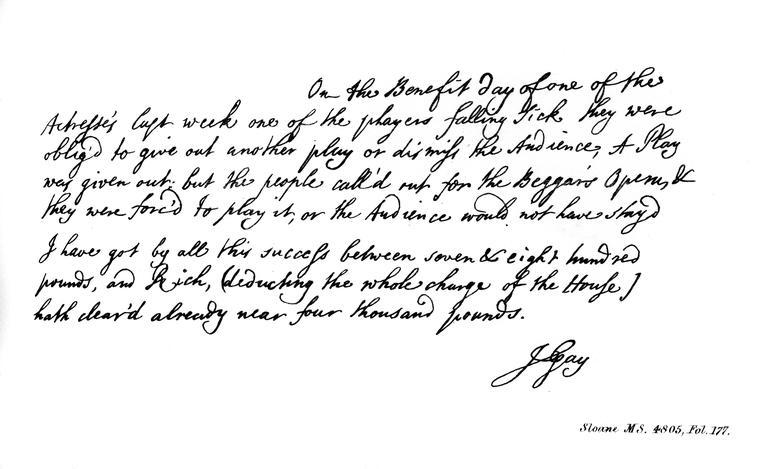 On the Benefit day of one of the
Actresse's last week one of the players falling sick they were
oblig'd to give out another play or dismiss the Audience, A Play
was given out. but the people call'd out for the Beggars Opera, &
they were forc'd to play it, or the Audience would not have stay'd
I have got by all this success between seven & eight hundred
pounds, and Rich, (deducting the whole charge of the House)
hath clear'd already near four thousand pounds.
J Gay
Sloane MS. 4805, Fol. 177.